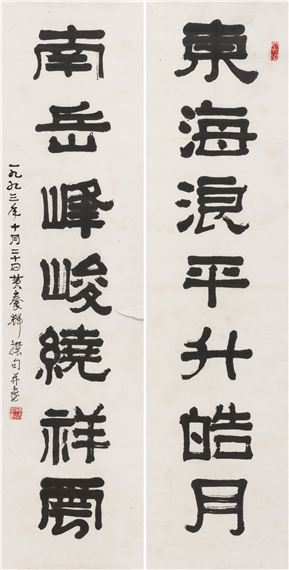 東海浪平升皓月
南岳峰峻繞祥雲
一九九三年十月二十日黄養輝撰句并書